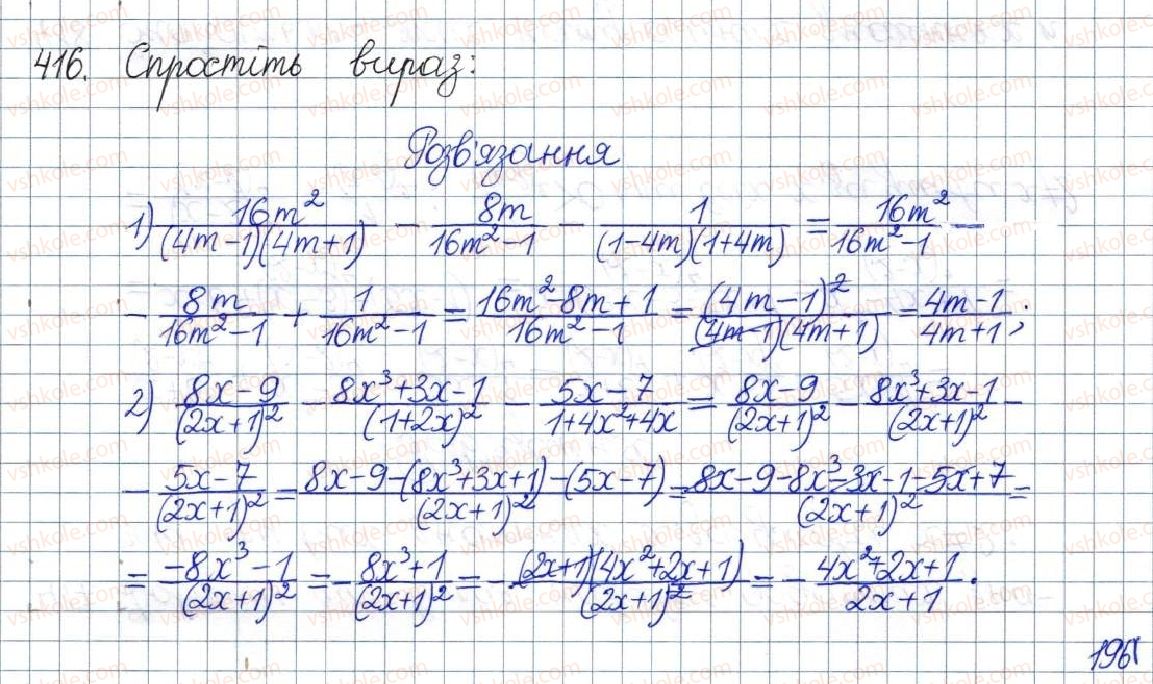 416. Спростіть вираз:
Розв'язання
1) 16m²/((4m-1)(4m+1)) - 8m/(16m²-1) - 1/((1-4m)(1+4m)) = 16m²/(16m²-1) -
- 8m/(16m²-1) + 1/(16m²-1) = (16m²-8m+1)/(16m²-1) = (4m-1)²/((4m-1)(4m+1)) = (4m-1)/(4m+1);
2) (8x-9)/(2x+1)² - (8x³+3x-1)/(1+2x)² - (5x-7)/(1+4x²+4x) = (8x-9)/(2x+1)² - (8x³+3x-1)/(2x+1)² -
- (5x-7)/(2x+1)² = (8x-9-(8x³+3x+1)-(5x-7))/(2x+1)² = (8x-9-8x³-3x-1-5x+7)/(2x+1)² =
= (-8x³-1)/(2x+1)² = -(8x³+1)/(2x+1)² = -((2x+1)(4x²+2x+1))/(2x+1)² = -(4x²+2x+1)/(2x+1).
196
vshkole.com